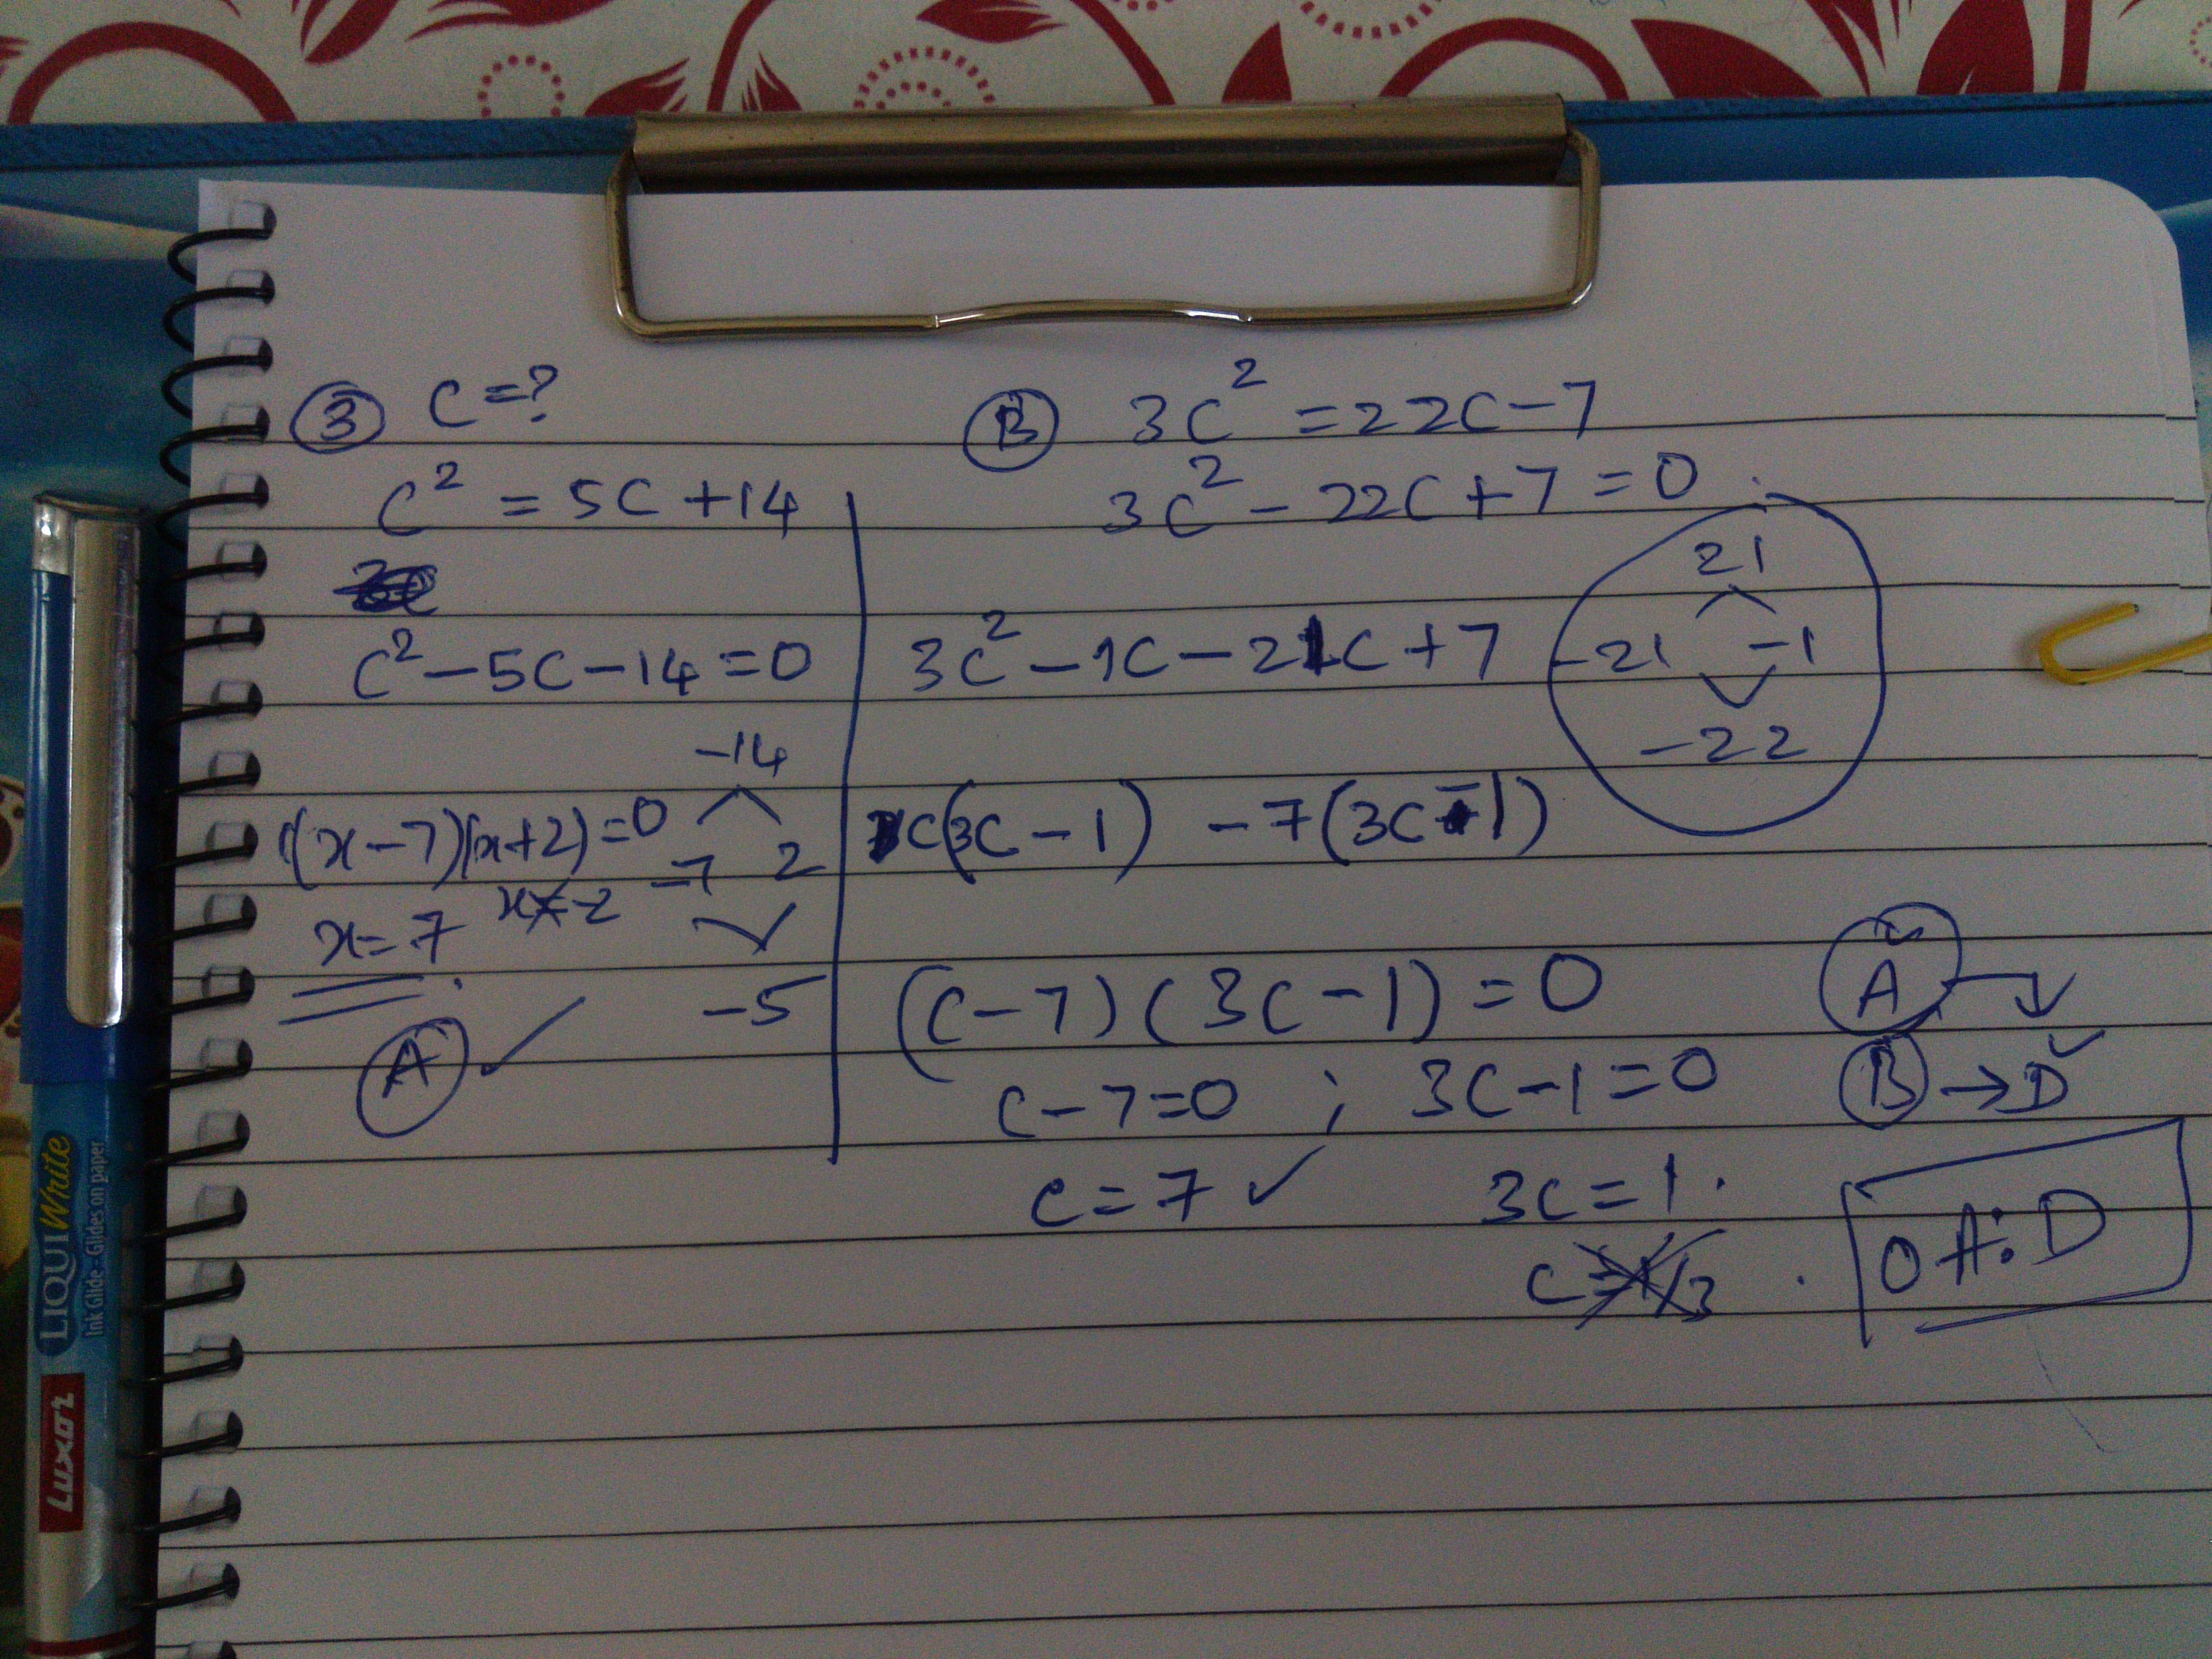 ③ C=?
C² = 5C +14
C² - 5C - 14 = 0
-14
(x-7)(x+2)=0
-7 2
x=7 x=-2
-5
Ⓐ ✓
Ⓑ 3C² = 22C - 7
3C² - 22C + 7 = 0
21
-21 -1
-22
3C² - 1C - 21C + 7
C(3C - 1) - 7(3C - 1)
(C-7)(3C-1) = 0
C-7=0 ; 3C-1=0
C = 7 ✓ 3C = 1
C = 1/3
Ⓐ
Ⓑ → D ✓
OA: D
LIQUI Write
Ink Glide - Glides on paper
Luxor